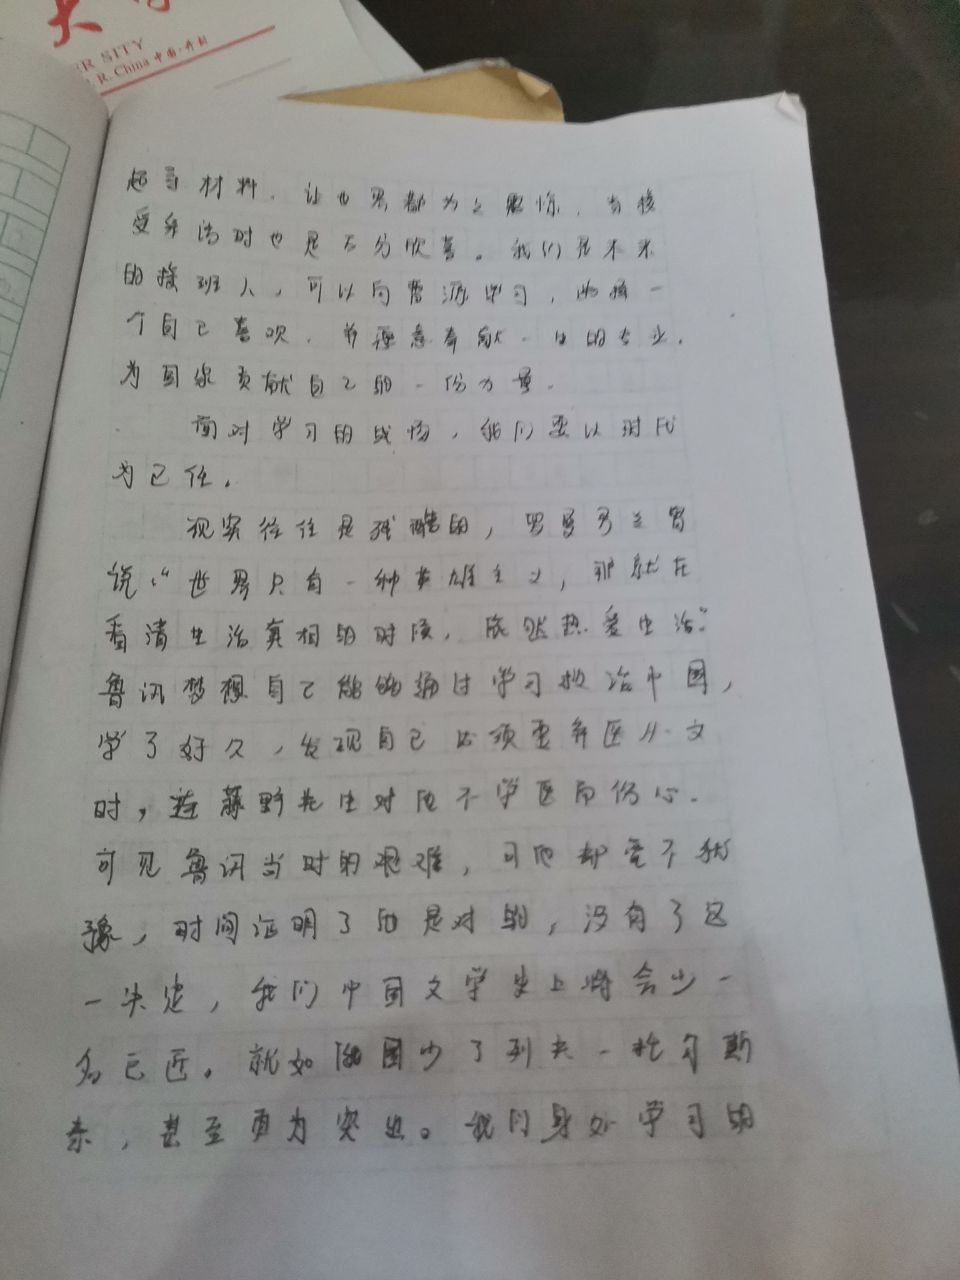 大
ER SITY
R. China 中国·开封
超导材料，让世界都为之震惊，当接
受采访时也是万分欣喜。我们是未来
的接班人，可以向曹源学习，选择一
个自己喜欢，并愿意奉献一生的专业，
为国家贡献自己的一份力量。
面对学习的战场，我们要以时代
为己任。
现实往往是残酷的，罗曼罗兰曾
说，“世界只有一种英雄主义，那就在
看清生活真相的时候，依然热爱生活”
鲁讯梦想自己能够通过学习救治中国，
学了好久，发现自己必须要弃医从文
时，连藤野先生对他不学医而伤心。
可见鲁讯当时的艰难，可他却毫不犹
豫，时间证明了他是对的，没有了这
一决定，我们中国文学史上将会少一
名巨匠。就如俄国少了列夫一托尔斯
泰，甚至更为突出。我们身处学习的